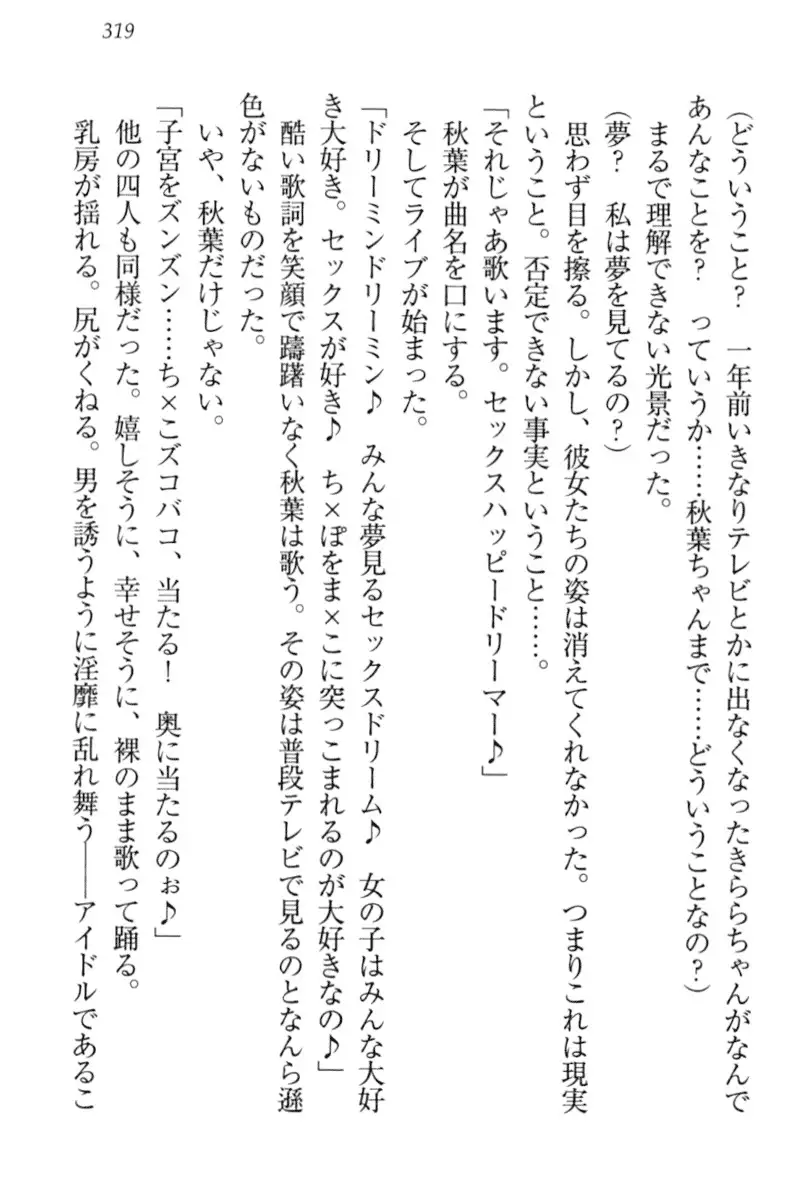 319
(どういうこと? 一年前いきなりテレビとかに出なくなったきららちゃんがなんで
あんなことを? っていうか……秋葉ちゃんまで……どういうことなの?)
まるで理解できない光景だった。
(夢? 私は夢を見てるの?)
思わず目を擦る。しかし、彼女たちの姿は消えてくれなかった。つまりこれは現実
ということ。否定できない事実ということ……。
「それじゃあ歌います。セックスハッピードリーマー♪」
秋葉が曲名を口にする。
そしてライブが始まった。
「ドリーミンドリーミン♪ みんな夢見るセックスドリーム♪ 女の子はみんな大好
き大好き。セックスが好き♪ ち×ぽをま×こに突っこまれるのが大好きなの♪」
酷い歌詞を笑顔で躊躇いなく秋葉は歌う。その姿は普段テレビで見るのとなんら遜
色がないものだった。
いや、秋葉だけじゃない。
「子宮をズンズン……ち×こズコバコ、当たる! 奥に当たるのぉ♪」
他の四人も同様だった。嬉しそうに、幸せそうに、裸のまま歌って踊る。
乳房が揺れる。尻がくねる。男を誘うように淫靡に乱れ舞う――アイドルであるこ